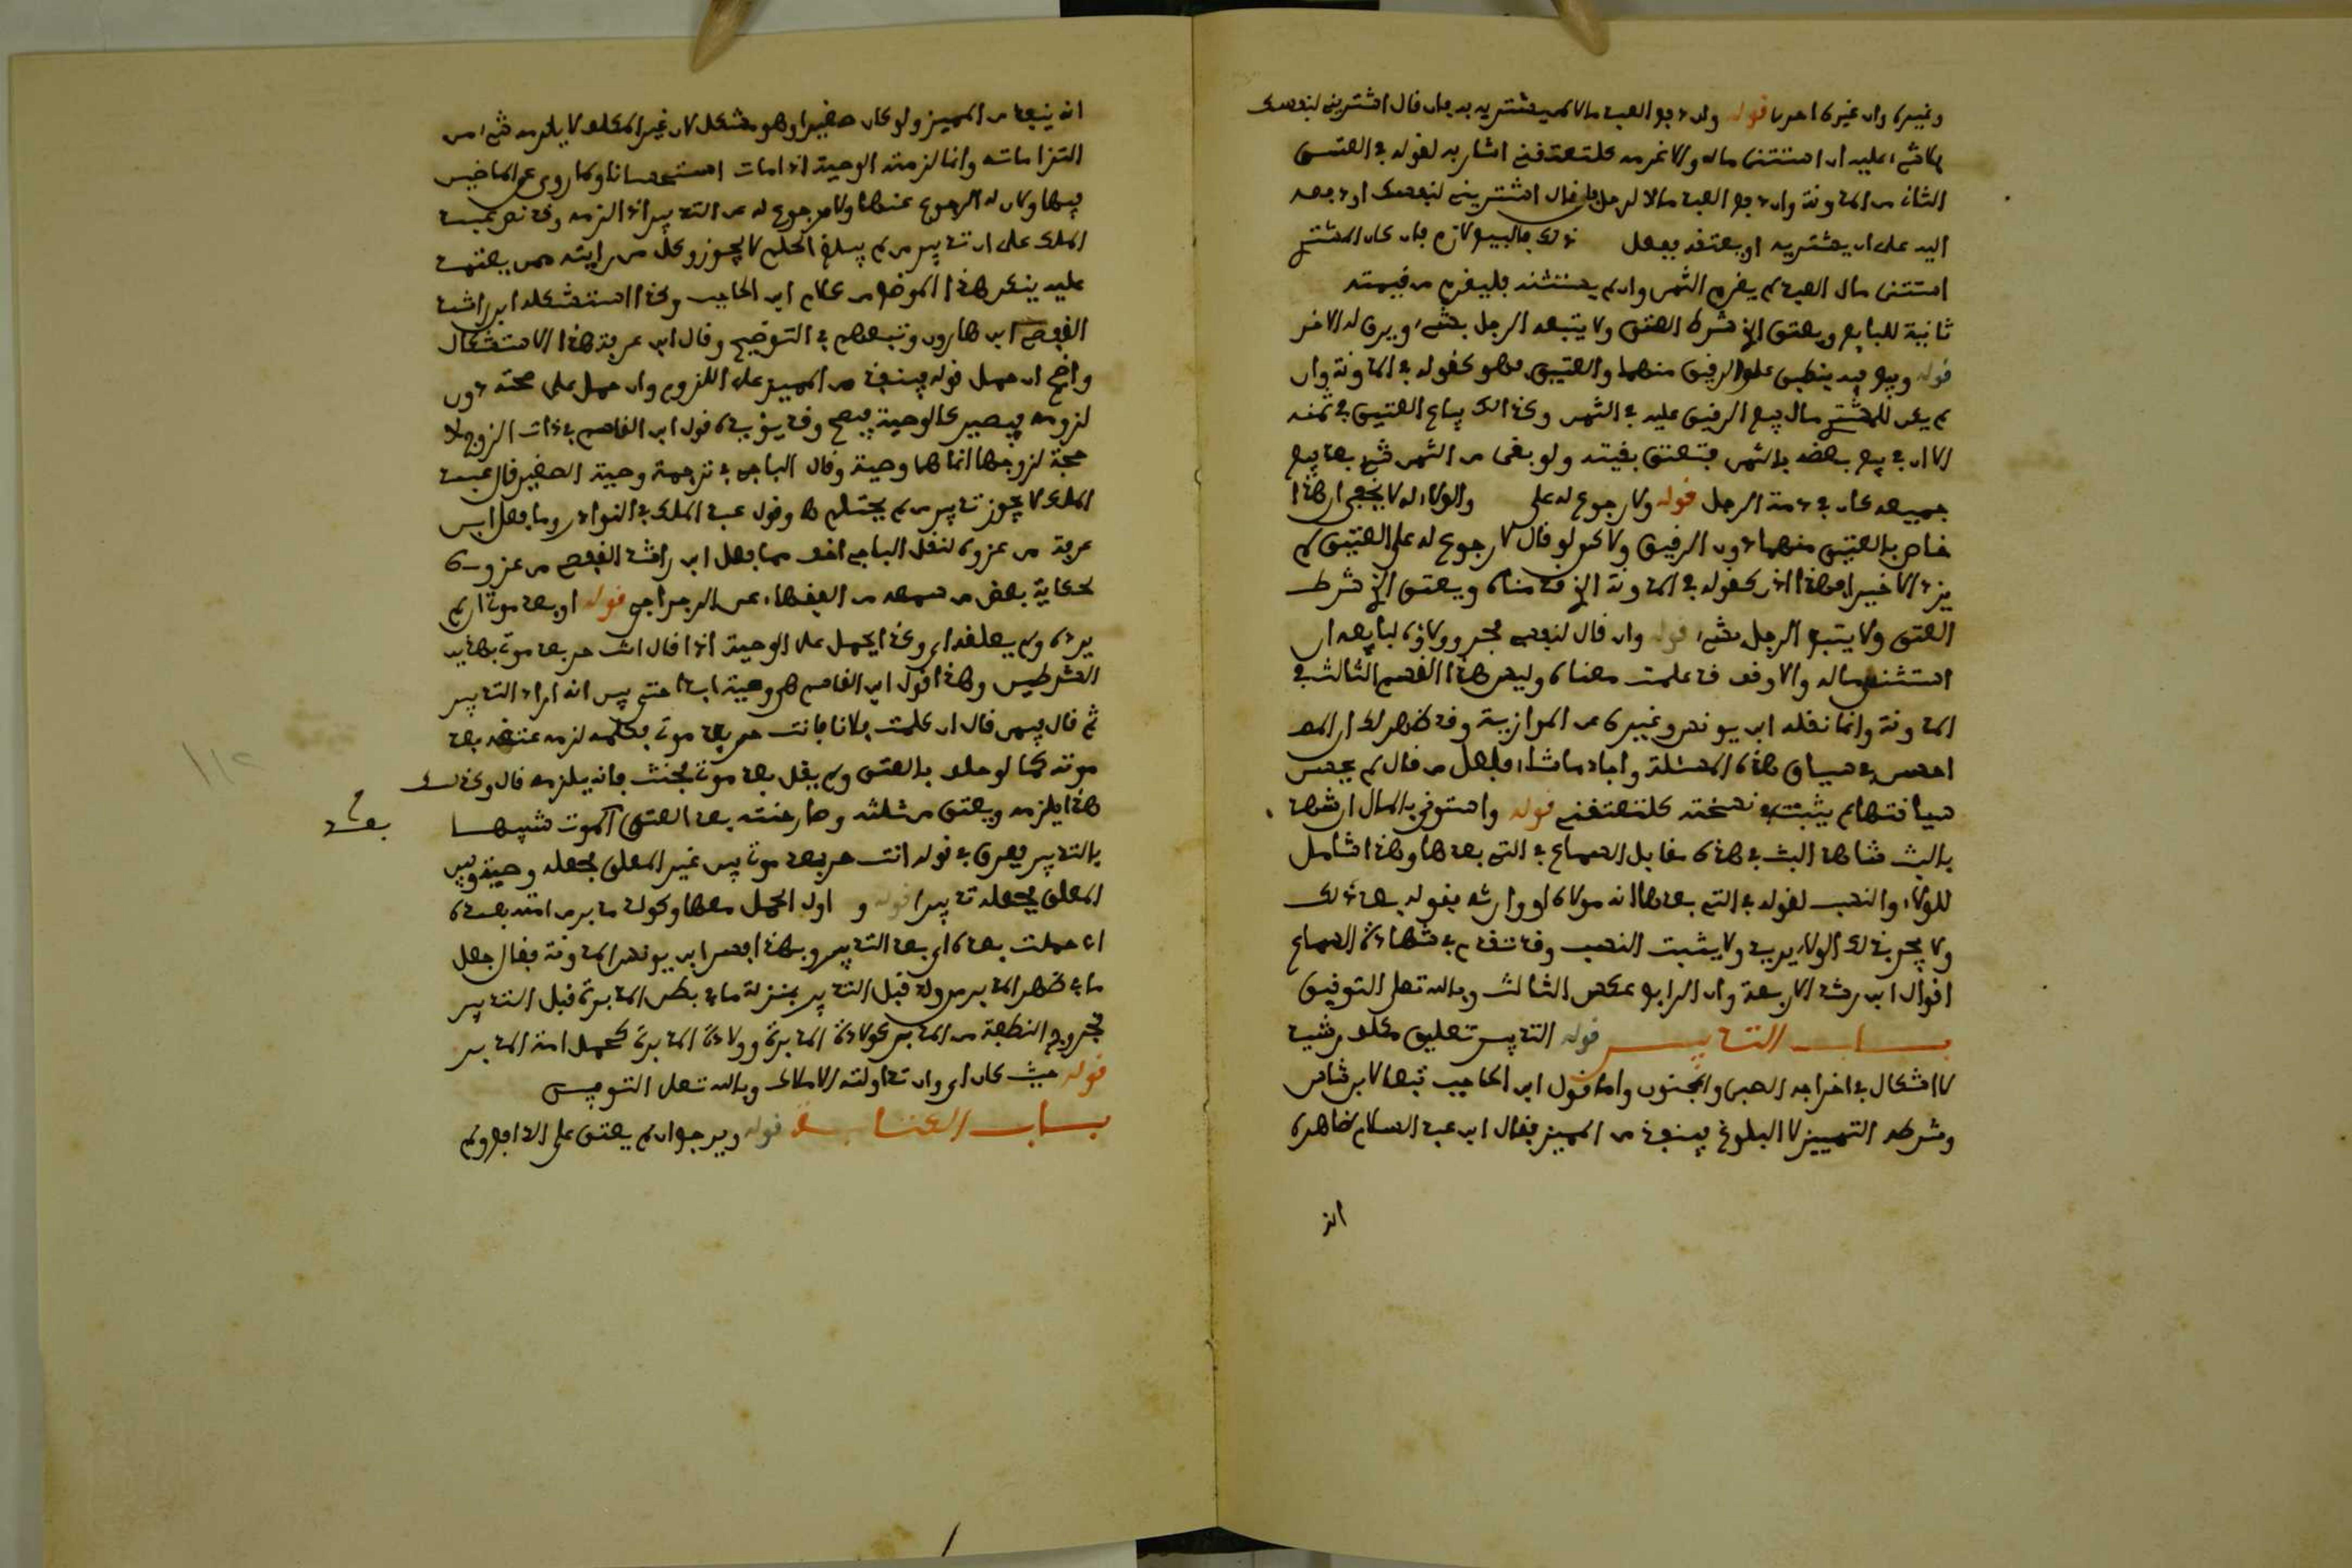 وغيره وان غيره احرى قوله وان دفع العبد مالا لمن يشتريه به فان قال اشترني لنفسك
فلا شيء عليه ان استثنى ماله والا غرمه كلتعتقني اشار به لقوله في العتق
الثاني من المدونة وان دفع العبد مالا لرجل فقال اشترني لنفسك او دفعه
اليه على ان يشتريه او يعتقه ففعل ذلك فالبيع لازم فان كان المشتري
استثنى مال العبد لم يغرم الثمن وان لم يستثنه فليغرم من قيمته
ثانية للبايع ويعتق الذي شرط العتق ولا يتبعه الرجل بشيء ويرق له الاخر
قوله وبيع فيه ينطبق على الرقيق منهما والعتيق فهو كقوله في المدونة وان
لم يكن للمشتري مال بيع الرقيق عليه في الثمن وكذلك يباع العتيق في ثمنه
الا ان يفي بيع بعضه بالثمن فتعتق بقيته ولو بقي من الثمن شيء بعد بيع
جميعه كان في ذمة الرجل قوله ولا رجوع له على والولاء له لا يخفى ان هذا
خاص بالعتيق منهما دون الرقيق ولاكن لو قال لا رجوع له على العتيق لم
يزد الاخيرا فهذا اذن كقوله في المدونة الذي قدمناه ويعتق الذي شرط
العتق ولا يتبع الرجل بشيء قوله وان قال لنفسي فحر وولاؤه لبايعه ان
استثنى ماله والا رق قد علمت معناه وليس هذا القسم الثالث في
المدونة وانما نقله ابن يونس وغيره عن الموازية وقد ظهر لك ان المص
احسن في سياق هذه المسئلة واجاد ما شاء ولعل من قال لم يحسن
سياقتها لم يثبت في نسخته كلتعتقني قوله واستوني بالمال ان شهد
بالبت شاهد البت في هذه مقابل السماع في التي بعدها وهذا شامل
للولاء والنسب لقوله في التي بعدها انه مولاه او وارثه فقوله بعد ذلك
ولا يجر بذلك الولاء يريد ولا يثبت النسب وقد تقدم في شهادة السماع
اقوال ابن رشد الاربعة وان الرابع عكس الثالث وبالله تعلى التوفيق
بــاب التدبيــر قوله التدبير تعليق مكلف رشيد
لا اشكال في اخراجه الصبي والمجنون واما قول ابن الحاجب تبعا لابن شاس
وشرطه التمييز لا البلوغ فينفذ من المميز فقال ابن عبد السلام ظاهره
انه
انه ينفذ من المميز ولو كان صغيرا وهو مشكل لان غير المكلف لا يلزمه شيء من
التزاماته وانما لزمته الوصية اذا مات استحسانا وكما روي عن الماضين
فيها وكان له الرجوع عنها ولا مرجوع له عن التدبير اذا الزمه وقد نص عبد
الملك على ان تدبير من لم يبلغ الحلم لا يجوز وكل من رايته ممن يعتمد
عليه ينكر هذا الموضع من كلام ابن الحاجب وكذا استشكله ابن راشد
القفصي ابن هارون وتبعهم في التوضيح وقال ابن عرفة هذا الاستشكال
واضح ان حمل قوله فينفذ من المميز على اللزوم وان حمل على صحته دون
لزومه فيصير كالوصية فيصح وقد يؤيده قول ابن القاسم في ذات الزوج لا
حجة لزوجها انما هنا وصية وقال الباجي في ترجمة وصية الصغير قال عبد
الملك لا يجوز تدبير من لم يحتلم ه وقول عبد الملك في النوادر وما فعل ابن
عرفة من عزوه لنقل الباجي اخف مما فعل ابن راشد القفصي من عزوه
لحكاية بعض من سمعه من الفقهاء عن الرجراجي قوله او بعد موتي ان لم
يرده ولم يعلقه اي وكذا يحمل على الوصية اذا قال انت حر بعد موتي بهذين
الشرطين وهذا قول ابن القاسم هي وصية ابدا حتى يبين انه اراد التدبير
ثم قال فيمن قال ان كلمت فلانا فانت حر بعد موتي فكلمه لزمه عتقه بعد
موته كما لو حلف بالعتق ولم يقل بعد موتي فحنث فانه يلزمه قال وكذلك
هذا يلزمه ويعتق من ثلثه وصار حنثه بعد العتق الموت شبيها
بعد صح
بالتدبير ففرق في قوله انت حر بعد موتي بين غير المعلق فجعله وصية وبين
المعلق فجعله تدبيرا قوله و اول الحمل معها وكولد مدبر من امته بعده
اي حملت بعده اي بعد التدبير وبهذا فسر ابن يونس المدونة فقال جعل
ما في ظهر المدبر من ولد قبل التدبير بمنزلة ما في بطن المدبرة قبل التدبير
فخروج النطفة من المدبر كولادة المدبرة وولادة المدبرة كحمل امة المدبر
قوله حيث كان اي وان تداولته الاملاك وبالله تعلى التوفيق
بــاب الكتابــة قوله ويرجع ان لم يعتق على الدافع ولم